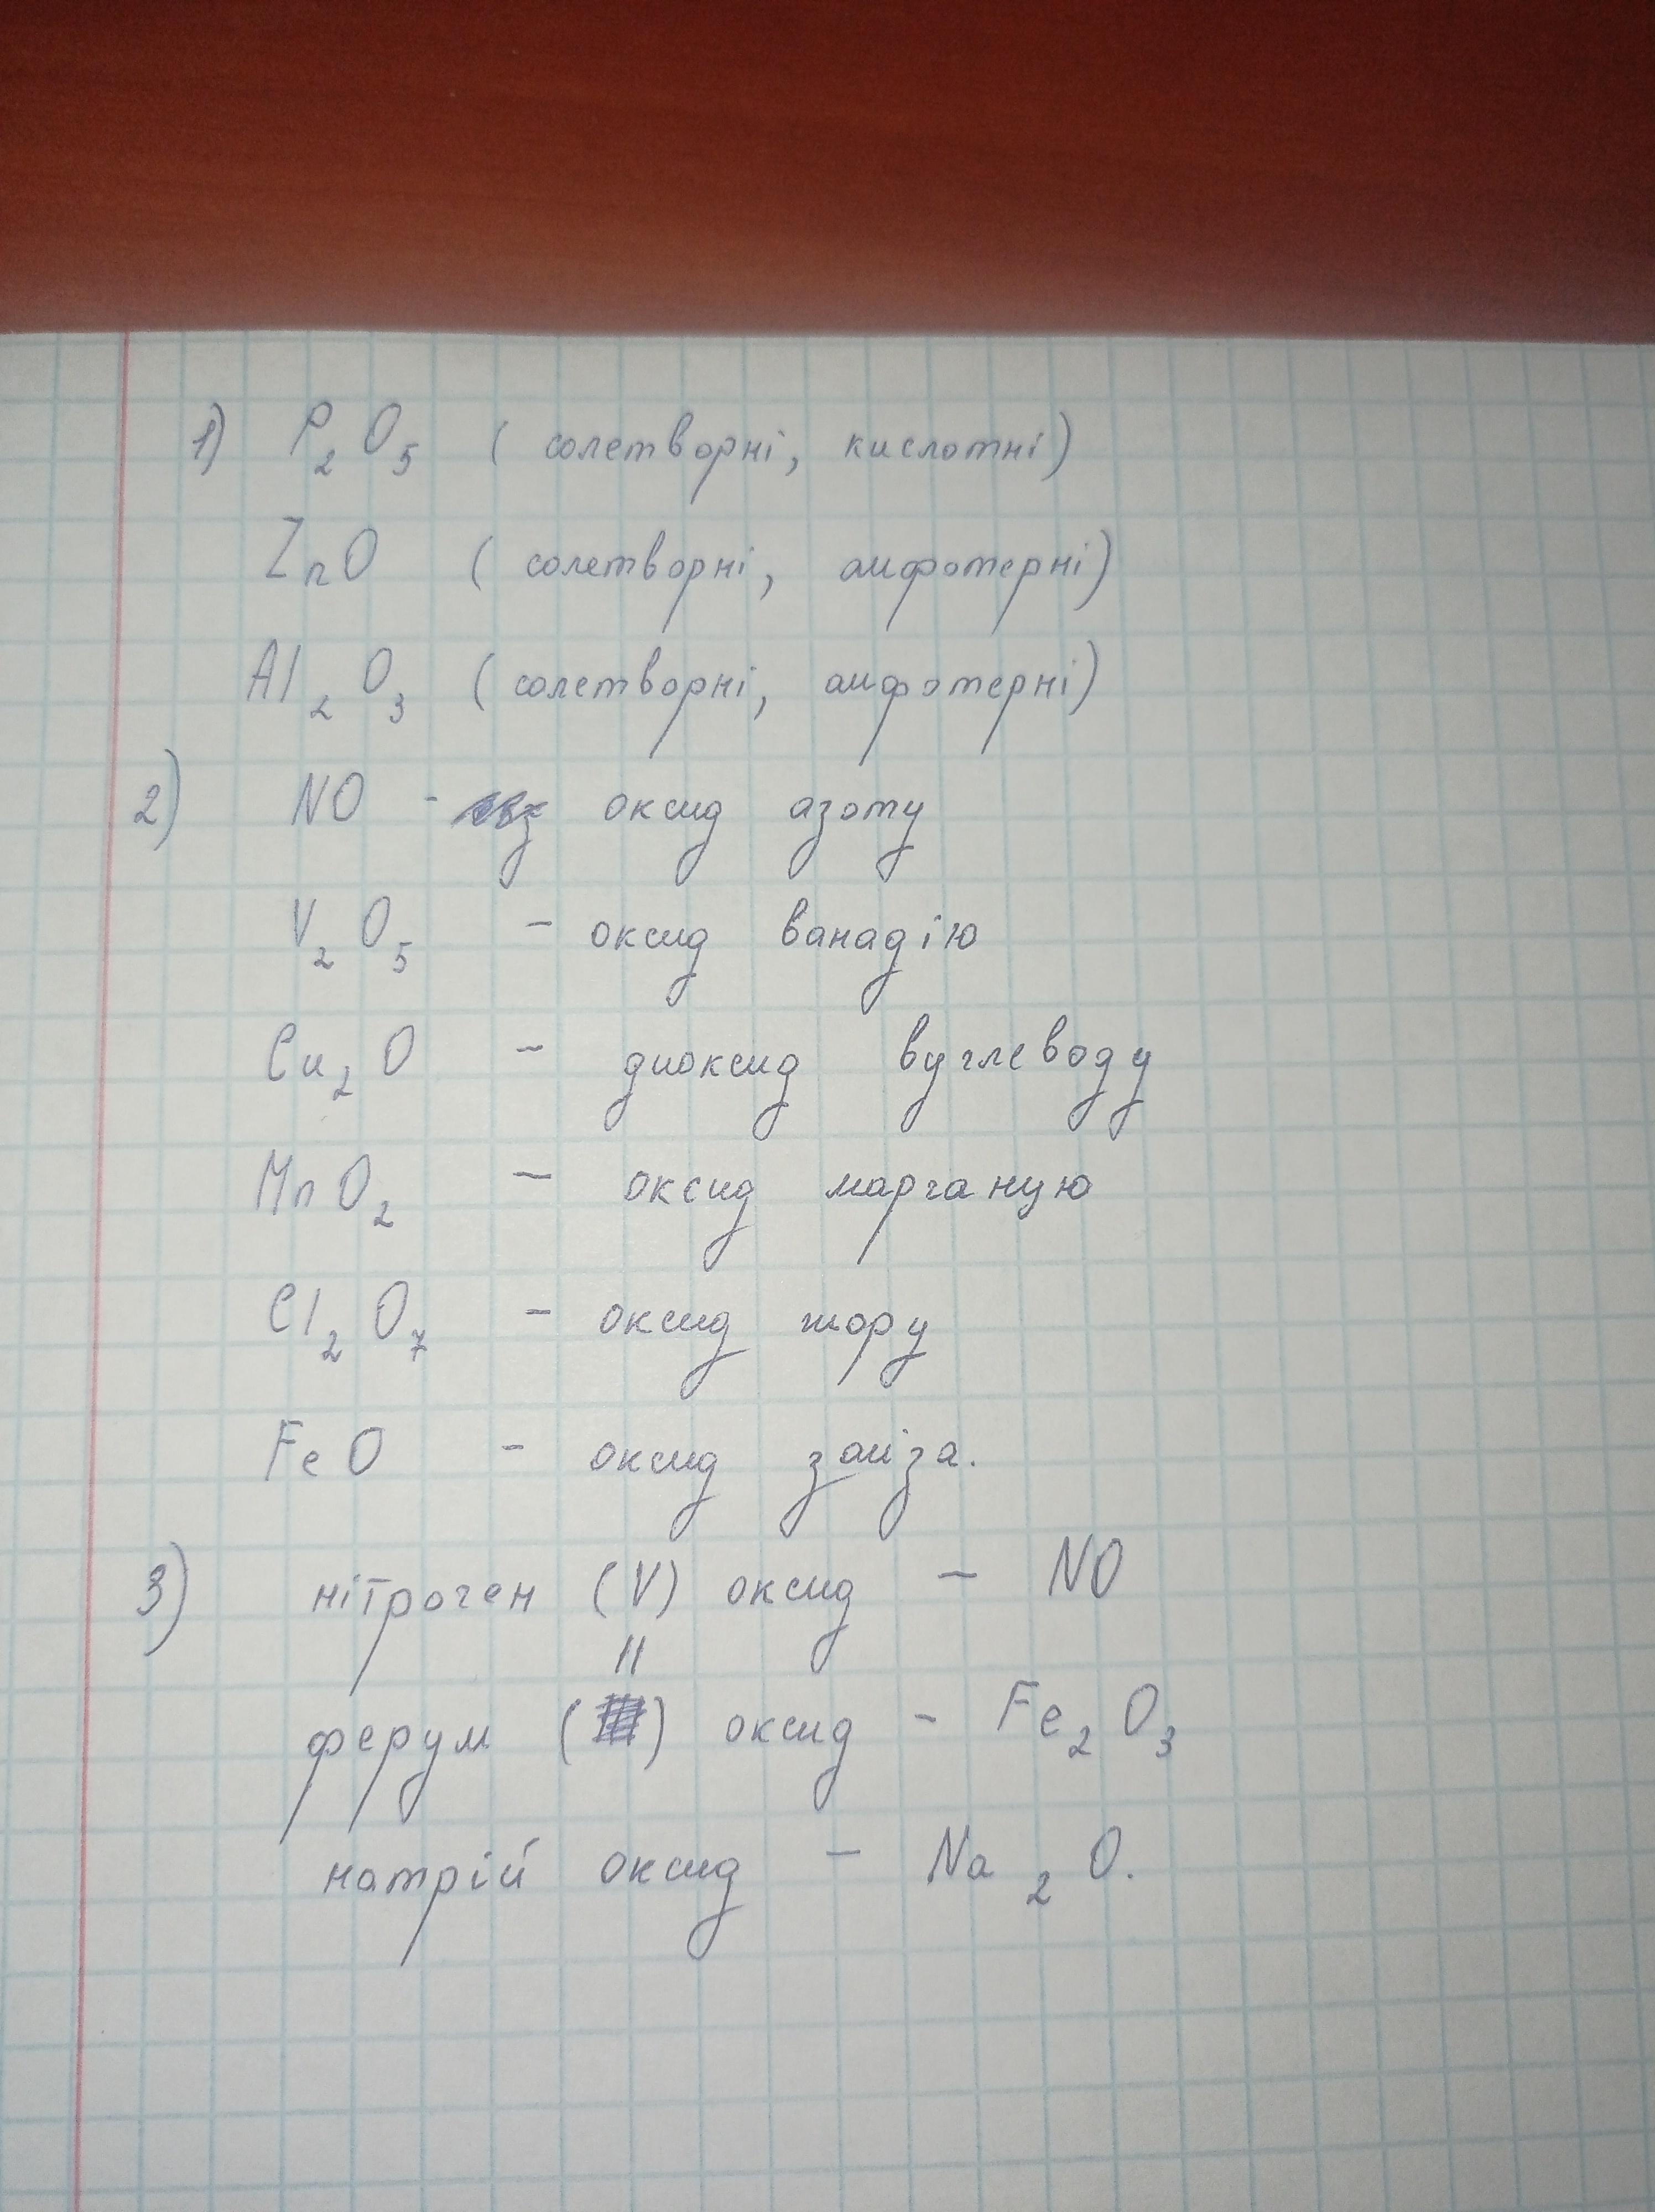 1) P₂O₅ (солетворні, кислотні)
ZnO (солетворні, амфотерні)
Al₂O₃ (солетворні, амфотерні)
2) NO - оксид азоту
V₂O₅ - оксид ванадію
Cu₂O - диоксид вуглеводу
MnO₂ - оксид марганую
Cl₂O₇ - оксид хлору
FeO - оксид заліза.
3) нітроген (V) оксид - NO
ферум (II) оксид - Fe₂O₃
натрій оксид - Na₂O.